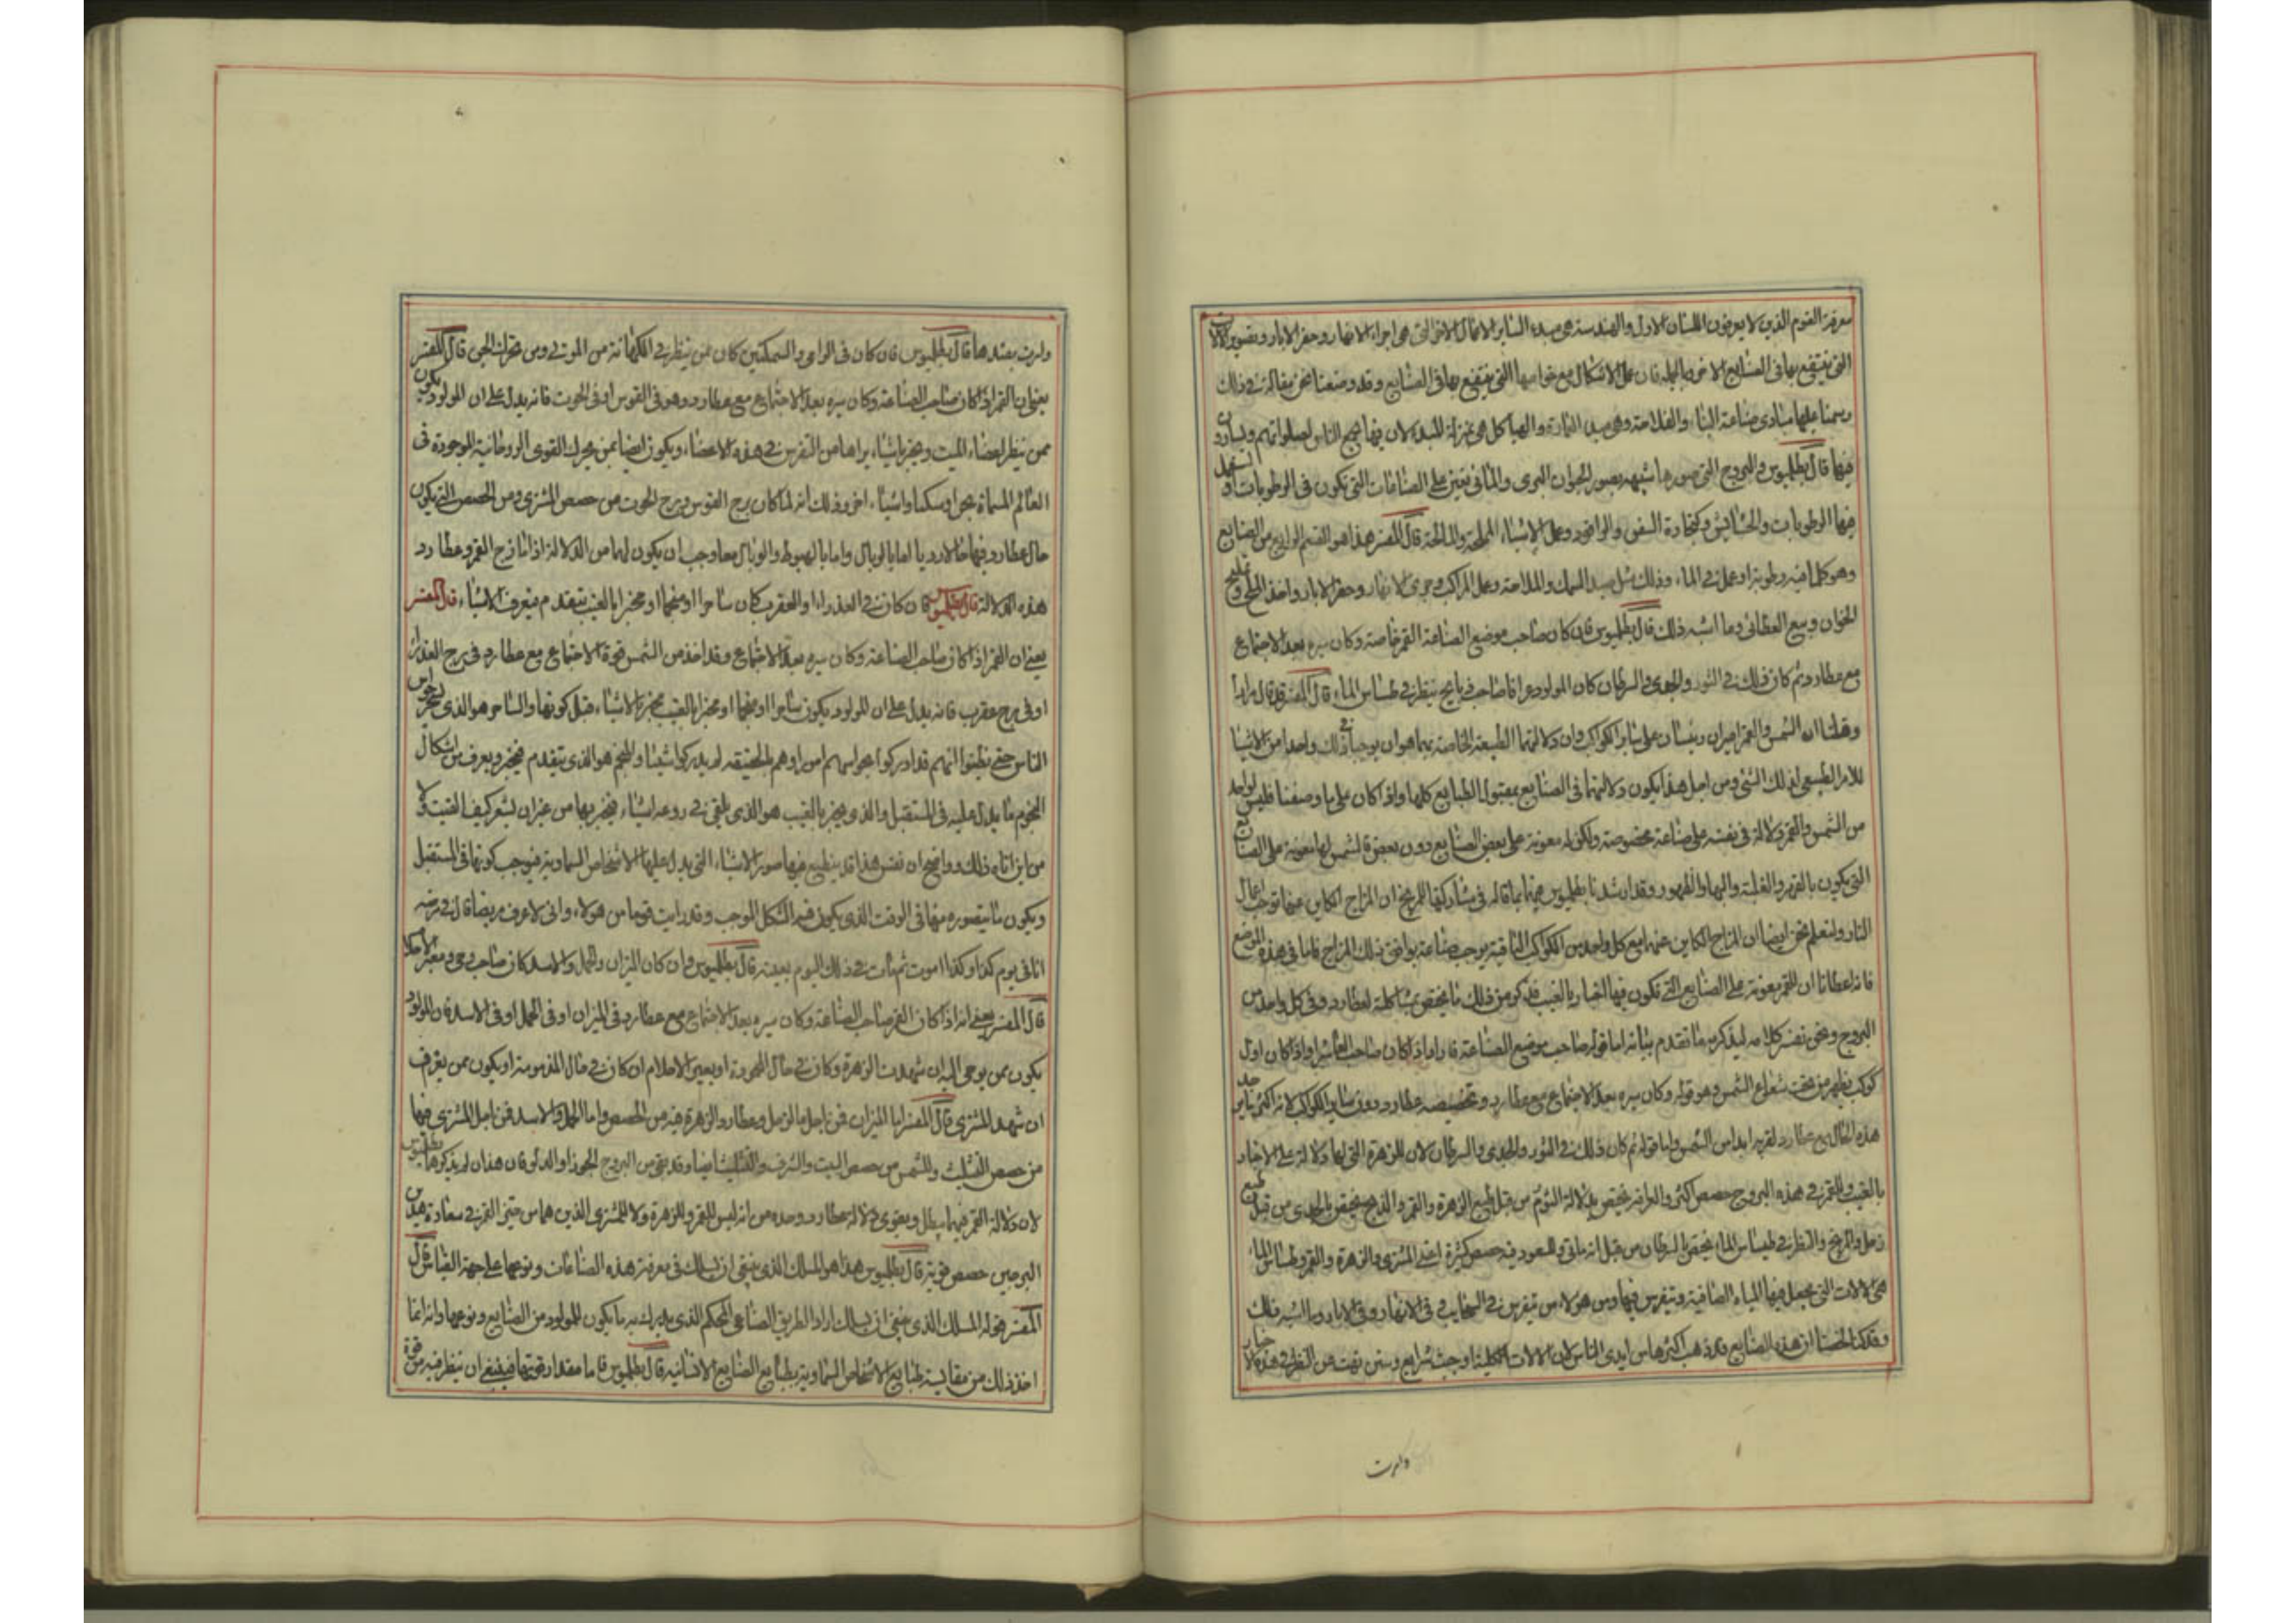 معرفة القوم الذين لا يعرفون اللسان الاول والهندسة هى مبدء لساير الاعمال الاخر التى هى اجراء الانهار وحفر الابار وتصوير الالات
التى ينتفع بها فى الصنايع الاخر وبالجملة فان عمل الاشكال مع خواصها التى ينتفع بها فى الصنايع وقد وضعنا نحن مقالة فى ذلك
وسمنا عليها مبادى صناعة البناء والفلاحة وهى مبدء والهياكل هى بمنزلة للبلد لان فيها يجمع الناس لصلواتهم
فيها قال بطلميوس والبروج التى صورها شبيهه بصور الحيوان البرى والمائى تعين على الصناعات التى تكون فى الرطوبات او تستعمل
فيها الرطوبات والحشايش وكنجارة السفن وعمل الاشياء المملحة والمالحة قال المفسر هذا هو القسم الرابع من الصنايع
وهو كلما فيه رطوبة او عمل فى الماء وذلك مثل صيد السمك والملاحة وعمل المراكب وجرى الانهار وحفر الابار واخذ الملح
وبيع وما اشبه ذلك قال بطلميوس فان كان صاحب موضع الصناعة القمر خاصة وكان سيره بعد الاجتماع
مع عطارد ثم كان ذلك فى الثور والجدى والسرطان كان المولود عرافا صاحب ذبايح ينظر فى طساس الماء قال المفسر قد قال مرارا
وقلنا ان الشمس والقمر اميران رئيسان على ساير الكواكب وان دلالتهما الطبيعة الخاصة بهما هو ان يوجبا فى ذلك واحدا من الاشيا
للامر الطبيعى لذلك الشئ ومن اجل هذا يكون دلالتهما فى الصنايع بقبول الطبايع كلها واذا كان على ما وصفنا فليس لواحد
من الشمس والقمر دلالة فى نفسه على صناعة مخصوصة ولكن له معونة على بعض الصنايع دون بعض فالشمس لها معونة على الصنايع
التى يكون بالقهر والغلبة والبها والظهور وقد ارشدنا بطلميوس هيهنا بما قاله فى مشاركتها للمريخ ان المزاج الكاين عنهما توجب اعمال
النار ولنعلم نحن ايضا ان المزاج الكاين عنها مع كل واحد من الكواكب الباقية يوجب صناعة يوافق ذلك المزاج فاما فى هذه الموضع
فانه اعطانا ان للقمر معونة على الصنايع التى تكون فيها اخبار بالغيب فذكر من ذلك ما يختص بمشاكلة لعطارد وفى كل واحد من
البروج ونحن نفسر كلامه ليذكر به ما تقدم بيانه اما قوله صاحب موضع الصناعة فاراد اذا كان صاحب العاشر او اذا كان اول
كوكب يظهر من تحت شعاع الشمس وهو قوله وكان سيره بعد الاجتماع مع عطارد وتخصيصه عطارد دون ساير الكواكب لانه اكثر
هذه الحال مع عطارد لقربه ابدا من الشمس واما قوله ثم كان ذلك فى الثور والجدى والسرطان لان للزهرة التى لها دلالة على الاخبار
بالغيب وللقمر فى هذه البروج حصص اكثر والعرافة يختص بدلالة الثور من قبل طبيعة الزهرة والقمر والذبح يختص بالجدى من قبل طبع
زحل والمريخ والنظر فى طساس الماء يختص السرطان من قبل انه مائى وللسعود فيه حصص كثيرة اعنى المشترى والزهرة والقمر وطساس الماء
هى الالات التى يجعل فيها المياه الصافية ويتفرس فيها ومن هولاء من يتفرس فى السحايب وفى الانهار وفى الابار وما اشبه ذلك
وقد لخصنا ان هذه الصنايع قد ذهب اكثرها من ايدى الناس لان الالات الكلية اوجبت شرايع وسنن نهت عن النظر فى هذه الاخبار
وامرت
وامرت بضدها قال بطلميوس فان كان فى الرامى والسمكتين كان ممن ينظر فى الكهانة من الموتى ومن تحرك الجن قال المفسر
يعنى ان القمر اذا كان صاحب الصناعة وكان سيره بعد الاجتماع مع عطارد وهو فى القوس او فى الحوت فانه يدل على ان المولود يكون
ممن ينظر لعضاء الميت ويخبر باشياء يراها من التفرس فى هذه الاعضاء ويكون ايضا ممن يحرك القوى الروحانية الموجودة فى
العالم المسماة بجن وسكنا واشياء اخر وذلك انه لما كان برج القوس وبرج الحوت من حصص المشترى ومن الحصص التى يكون
حال عطارد فيها حالا رديا اما بالوبال واما بالهبوط والوبال معا وجب ان يكون لهما من الدلالة اذا مازج القمر وعطارد
هذه الدلالة قال بطلميوس فان كان فى العذراء او العقرب كان ساحرا او منجما او مخبرا بالغيب يتقدم فيعرف الاشياء قال المفسر
يعنى ان القمر اذا كان صاحب الصناعة وكان سيره بعد الاجتماع وقد اخذ من الشمس قوة الاجتماع مع عطارد فى برج العذراء
او فى برج عقرب فانه يدل على ان المولود يكون ساحرا او منجما او مخبرا بالغيب مخبر بالاشياء قبل كونها والساحر هو الذى يسحر حواس
الناس حتى يظنوا انهم قد ادركوا بحواسهم امرا وهم بالحقيقه لم يدركوا شيئا والمنجم هو الذى يتقدم فيخبر ويعرف من اشكال
النجوم ما يدل عليه فى المستقبل والذى يخبر بالغيب هو الذى يلقى فى روعه اشياء فيخبر بها من غير ان يشعر كيف القيت ولا
من اين اتاه ذلك وواضح ان نفس هذا قد ينطبع فيها صور الاشياء التى يدل عليها الاشخاص السماوية فيوجب كونها فى المستقبل
ويكون ما يتصوره منها فى الوقت الذى يكون فيه الشكل الموجب وقد رايت قوما من هولاء وانى لاعرف مريضا قال فى مرضه
انا فى يوم كذا وكذا اموت ثم مات فى ذلك اليوم بعينه قال بطلميوس وان كان الميزان والحمل والاسد كان صاحب وحى ومعبر الاحلام
قال المفسر يعنى انه اذا كان القمر صاحب الصناعة وكان سيره بعد الاجتماع مع عطارد فى الميزان او فى الحمل او فى الاسد فان المولود
يكون ممن يوحى اليه ان شهدت الزهرة وكان فى حال المحمودة او بعين الاحلام ان كان فى حال المذمومة او يكون ممن يعرف
ان شهد المشترى قال المفسر اما الميزان فمن اجل ما لزحل وعطارد والزهرة فيه من الحصص واما الحمل والاسد فمن اجل المشترى فيها
من حصص المثلثة وللشمس من حصص البيت والشرف والمثلثة ايضا وقد بقى من البروج الجوزا والدلو فان هذان لم يذكرها بطلميوس
لان دلالة القمر فيهما يبطل ويقوى دلالة عطارد وحده من انه ليس للقمر وللزهرة ولا للمشترى الذين هما من حيز القمر فى سعادة هذين
البرجين حصص قوية قال بطلميوس هذا هو المسلك الذى ينبغى ان يسلك فى معرفة هذه الصناعات ونوعها على جهة القياس قال
المفسر قوله المسلك الذى ينبغى ان يسلك اراد الطريق الصناعى المحكم الذى يدرك به ما يكون للمولود من الصنايع ونوعها وانه انما
اخذ ذلك من مقايسة طبايع الاشخاص السماوية بطبايع الصنايع الانسانية قال بطلميوس فاما مقدار قوتها فينبغى ان ينظر فيه من قوة